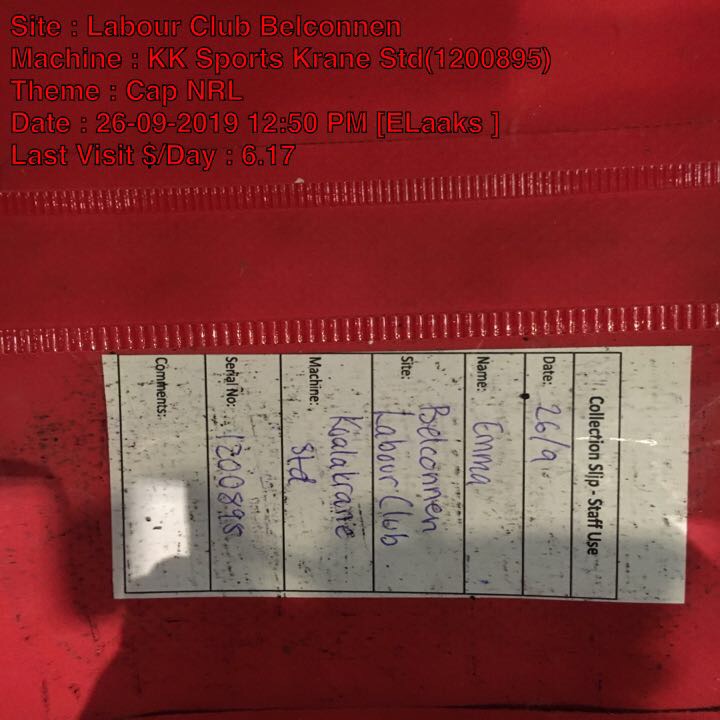 Site : Labour Club Belconnen
Machine : KK Sports Krane Std(1200895)
Theme : Cap NRL
Date : 26-09-2019 12:50 PM [ELaaks ]
Last Visit $/Day : 6.17
Collection Slip - Staff Use
Date: 26/9
Name: Emma
Site: Belconnen
Labour Club
Machine: Kualakrane
Std
Serial No: 1200895
Comments: